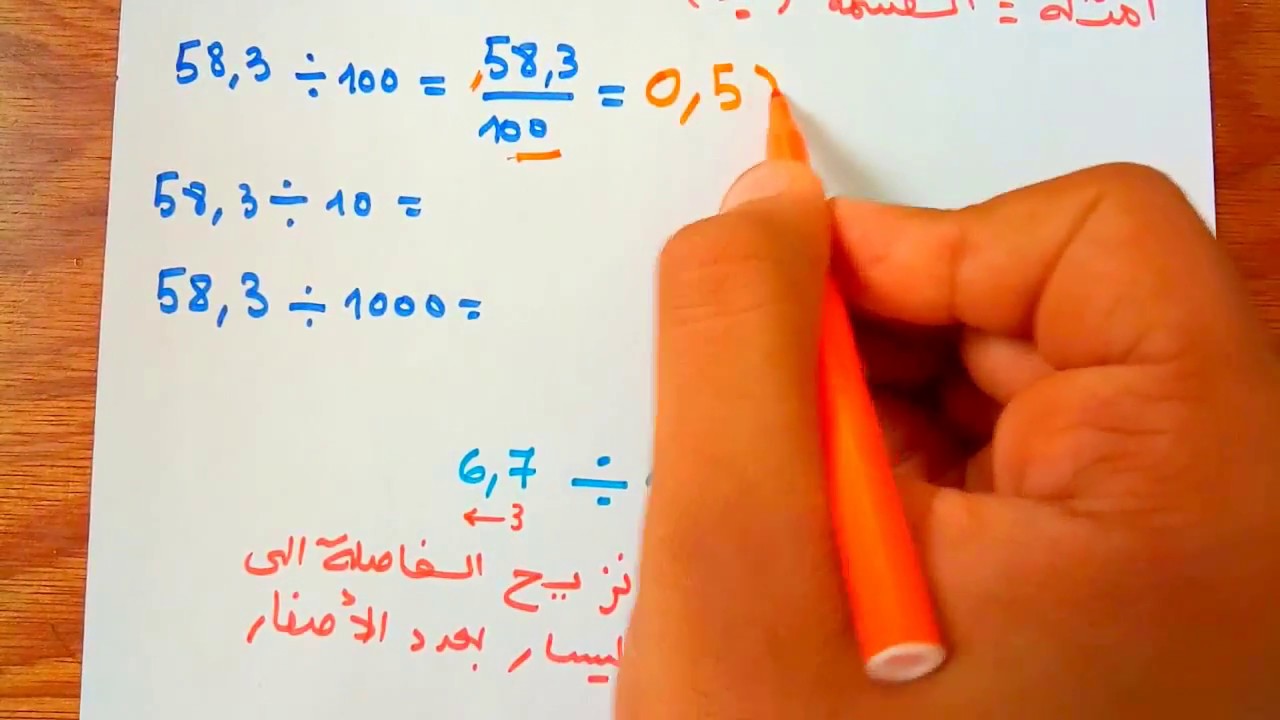 أمثلة = القسمة
58,3 ÷ 100 = 58,3 / 100 = 0,5
58,3 ÷ 10 =
58,3 ÷ 1000 =
6,7 ÷
←3
نزيح الفاصلة الى
ليسار بعدد الأصفار